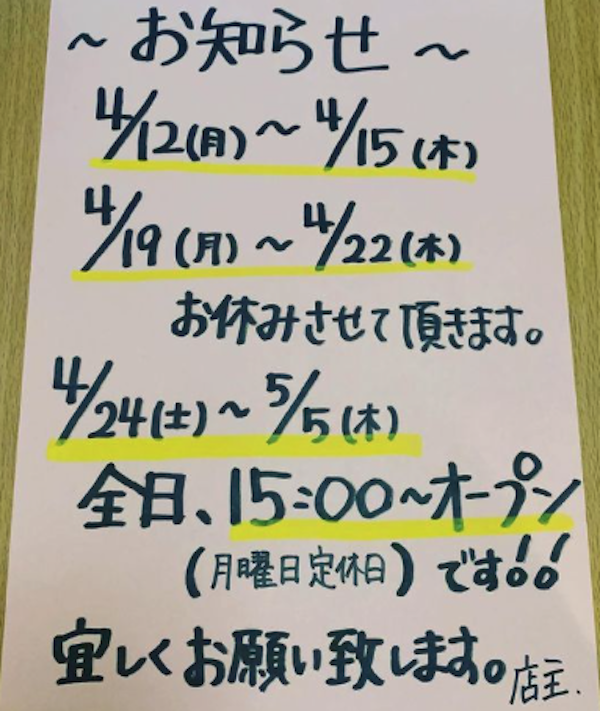 ～お知らせ～
4/12(月)～4/15(木)
4/19(月)～4/22(木)
お休みさせて頂きます。
4/24(土)～5/5(木)
全日、15:00～オープン
(月曜日定休日)です!!
宜しくお願い致します。店主.